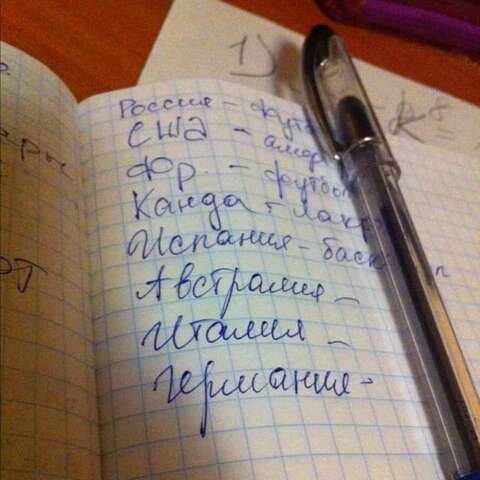 1)
Россия - футб
США - амер
Фр. - футбол
Канда - Лакр
Испания - баск
Австралия -
Италия -
Германия -